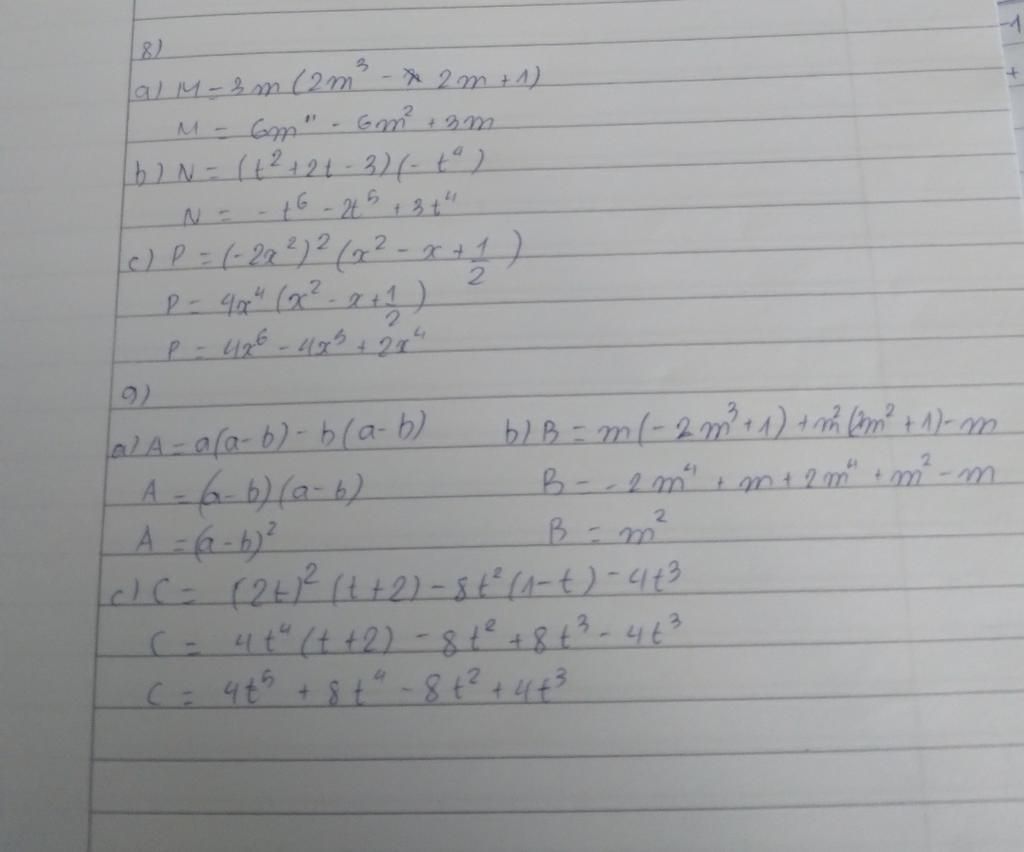 8)
a) M = 3m (2m³ - 2m + 1)
M = 6m⁴ - 6m² + 3m
b) N = (t² + 2t - 3) (- t⁴)
N = - t⁶ - 2t⁵ + 3t⁴
c) P = (-2x²)² (x² - x + 1/2)
P = 4x⁴ (x² - x + 1/2)
P = 4x⁶ - 4x⁵ + 2x⁴
9)
a) A = a(a-b) - b(a-b)
A = (a-b)(a-b)
A = (a-b)²
b) B = m(-2m³+1) + m²(2m²+1) - m
B = -2m⁴ + m + 2m⁴ + m² - m
B = m²
c) C = (2t)² (t+2) - 8t² (1-t) - 4t³
C = 4t⁴ (t+2) - 8t² + 8t³ - 4t³
C = 4t⁵ + 8t⁴ - 8t² + 4t³